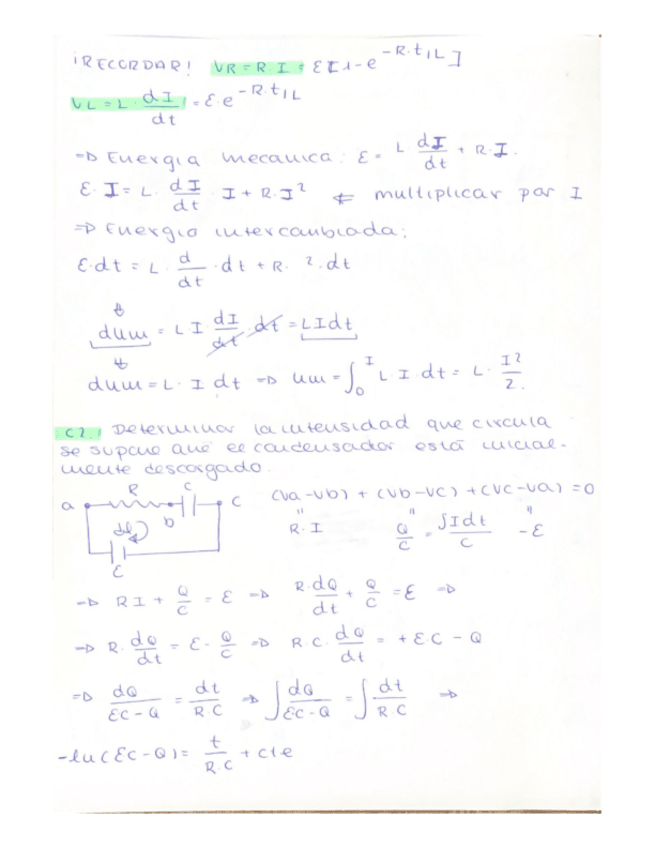 ¡RECORDAR! VR = R·I = ε[1-e^-R·t/L]
VL = L· dI/dt = ε·e^-R·t/L
=> Energia mecanica: ε = L·dI/dt + R·I.
ε·I = L· dI/dt · I + R·I² ⇐ multiplicar por I
=> Energia intercambiada:
ε·dt = L· d/dt ·dt + R· ²·dt
dum = L I· dI/dt ·dt = LIdt
dum = L· I dt => um = ∫₀^I L·I·dt = L· I²/2.
C2.| Determinar la intensidad que circula
se supone que el condensador está inicial-
mente descargado.
a R b C c ε
(Va-Vb) + (Vb-Vc) + (Vc-Va) = 0
" " "
R·I Q/C = ∫Idt/C -ε
=> RI + Q/C = ε => R·dQ/dt + Q/C = ε =>
=> R·dQ/dt = ε - Q/C => RC·dQ/dt = +ε·C - Q
=> dQ/εC-Q = dt/R·C => ∫dQ/εC-Q = ∫dt/R·C =>
-ln(εC-Q) = t/R·C + cte